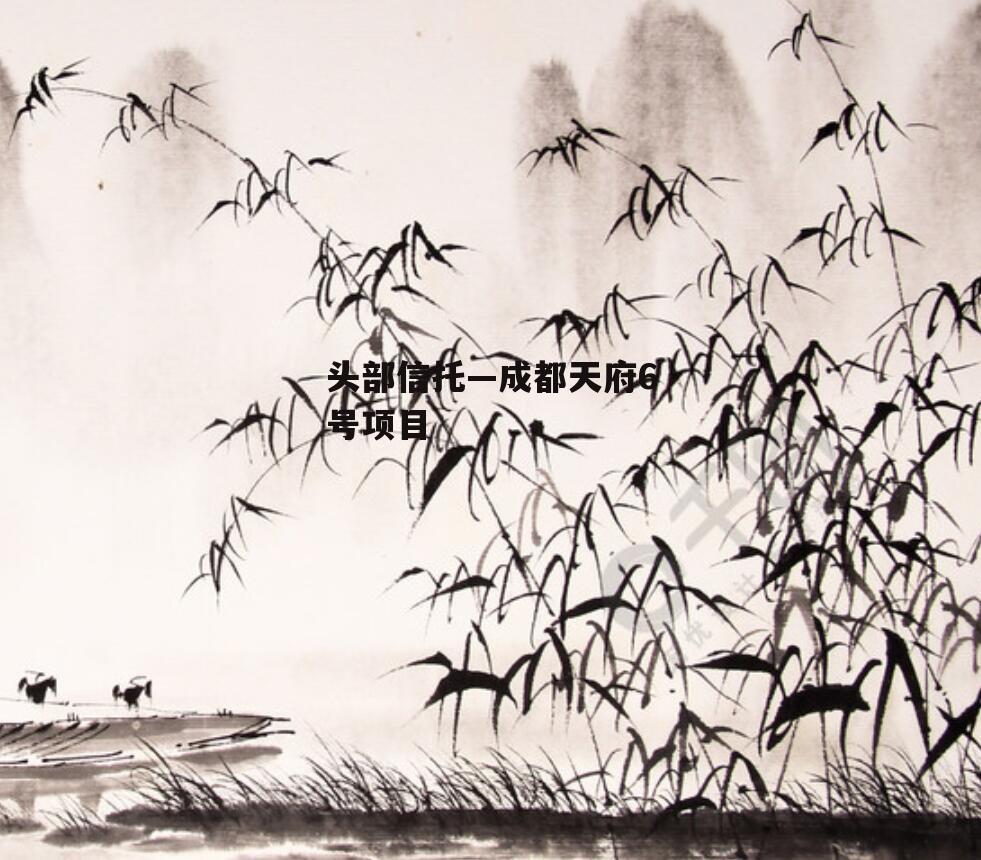 头部信托—成都天府6
号项目